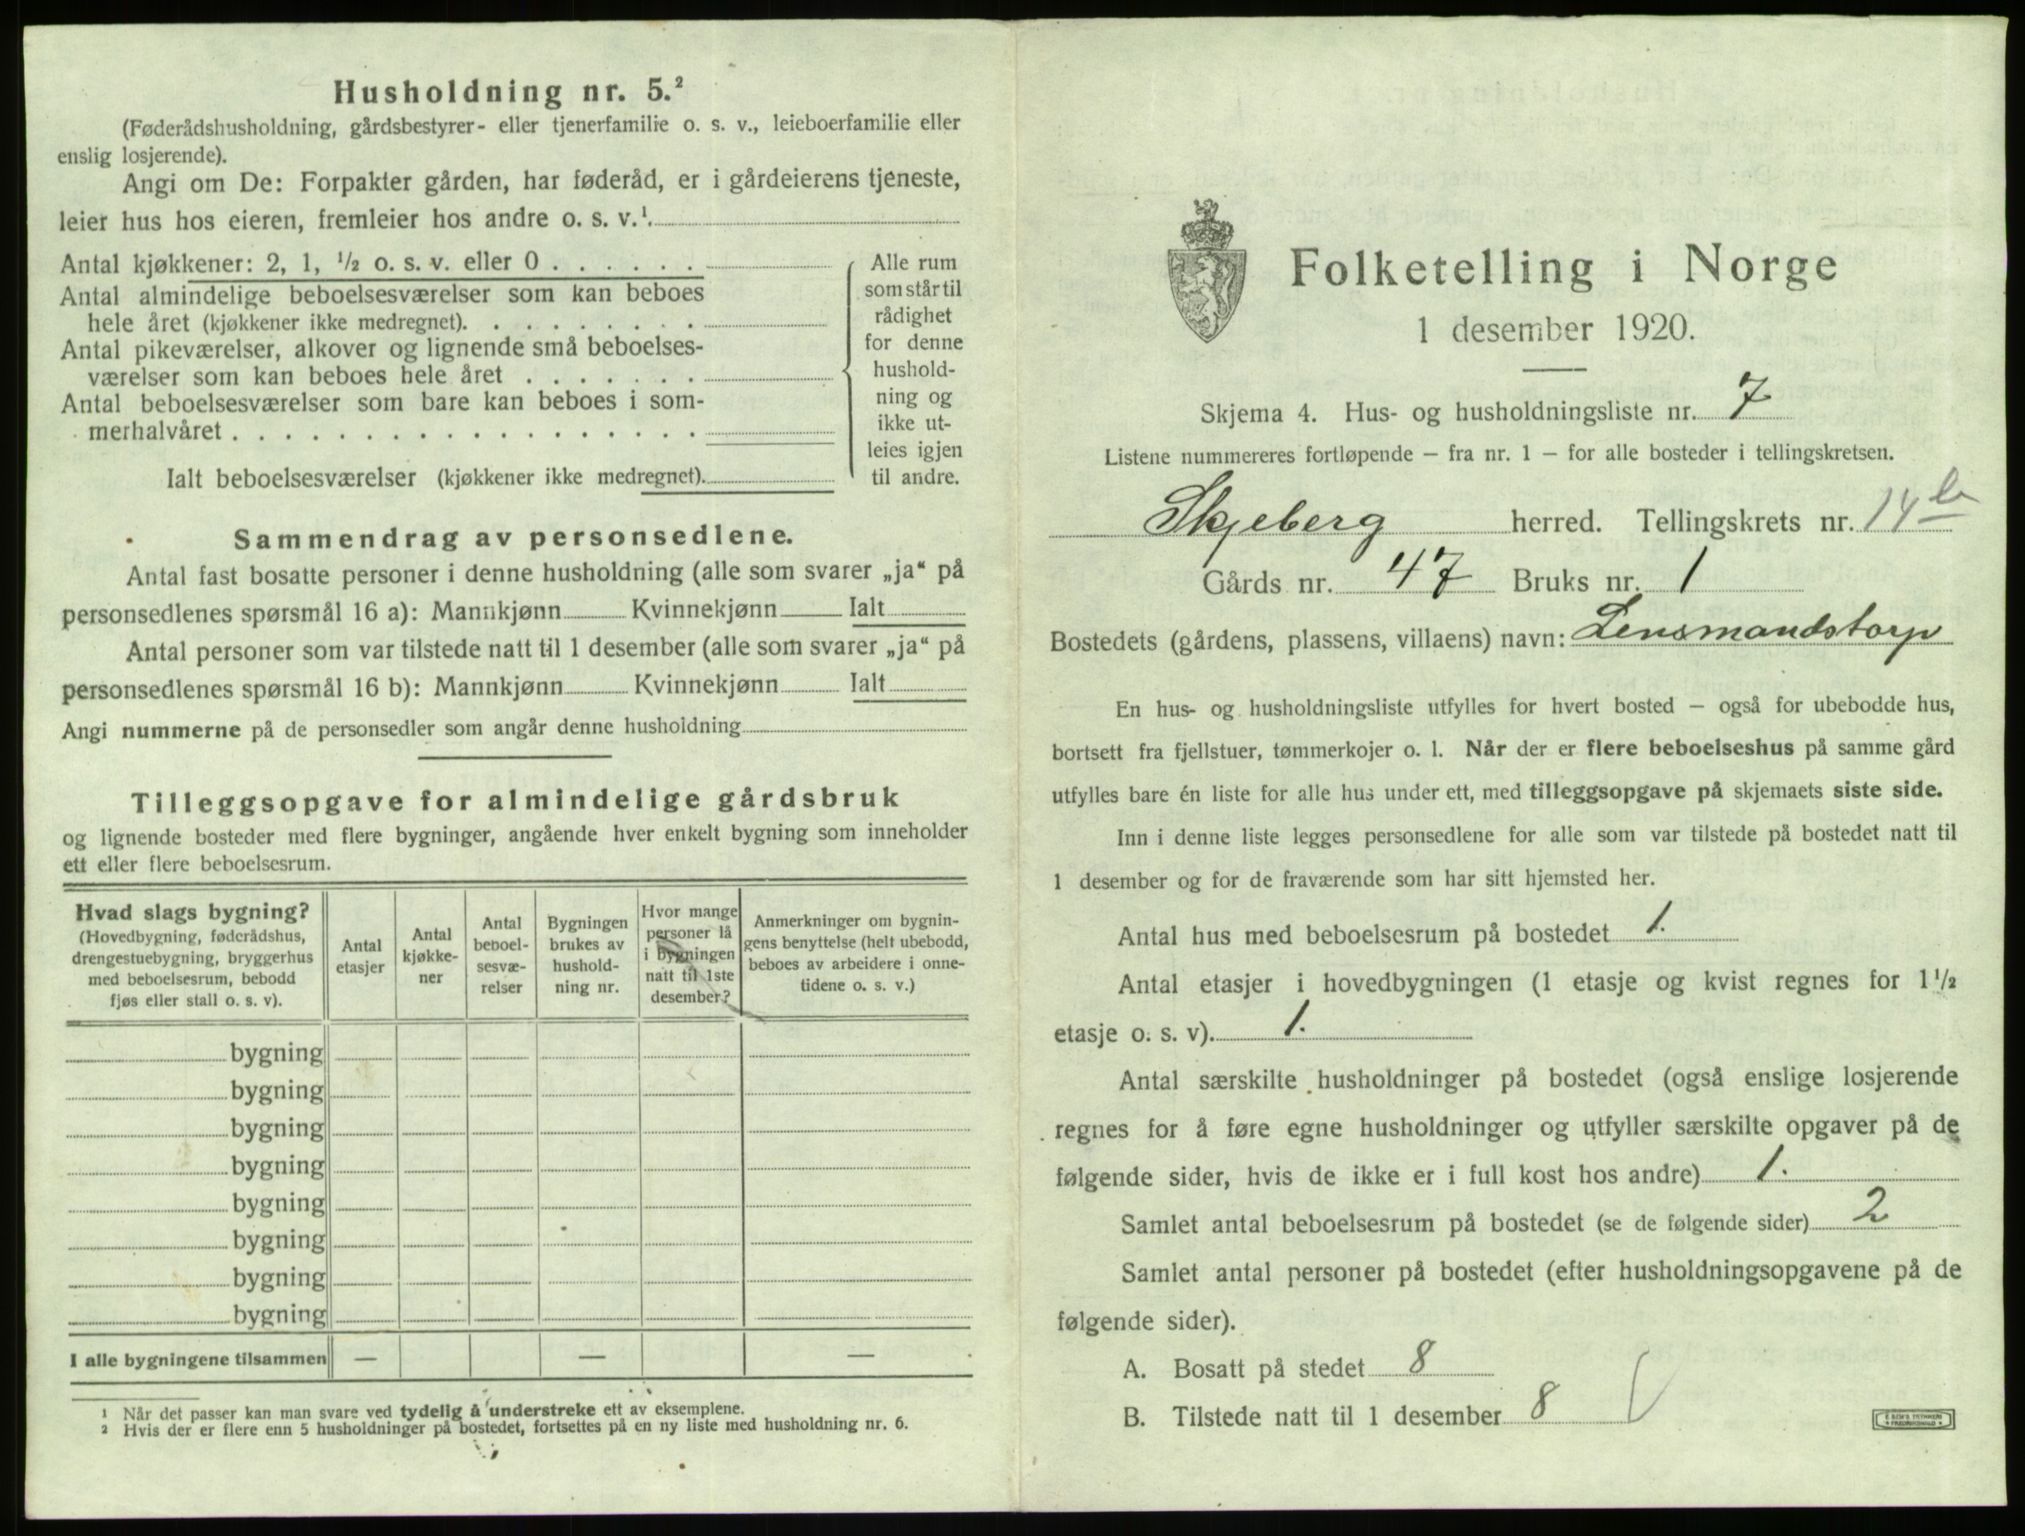 Husholdning nr. 5.²
(Føderådshusholdning, gårdsbestyrer- eller tjenerfamilie o. s. v., leieboerfamilie eller
enslig losjerende).
Angi om De: Forpakter gården, har føderåd, er i gårdeierens tjeneste,
leier hus hos eieren, fremleier hos andre o. s. v.¹.
Antal kjøkkener: 2, 1, ½ o. s. v. eller 0 . . . . . .
Antal almindelige beboelsesværelser som kan beboes
hele året (kjøkkener ikke medregnet). . . . . . . . .
Antal pikeværelser, alkover og lignende små beboelses-
værelser som kan beboes hele året . . . . . . .
Antal beboelsesværelser som bare kan beboes i som-
merhalvåret . . . . . . . . . . . . . . . . . .
Ialt beboelsesværelser (kjøkkener ikke medregnet).
Alle rum
som står til
rådighet
for denne
hushold-
ning og
ikke ut-
leies igjen
til andre.
Sammendrag av personsedlene.
Antal fast bosatte personer i denne husholdning (alle som svarer „ja“ på
personsedlenes spørsmål 16 a): Mannkjønn Kvinnekjønn Ialt
Antal personer som var tilstede natt til 1 desember (alle som svarer „ja“ på
personsedlenes spørsmål 16 b): Mannkjønn Kvinnekjønn Ialt
Angi nummerne på de personsedler som angår denne husholdning
Tilleggsopgave for almindelige gårdsbruk
og lignende bosteder med flere bygninger, angående hver enkelt bygning som inneholder
ett eller flere beboelsesrum.
Hvad slags bygning?
(Hovedbygning, føderådshus,
drengestuebygning, bryggerhus
med beboelsesrum, bebodd
fjøs eller stall o. s. v).
Antal
etasjer
Antal
kjøkke-
ner
Antal
beboel-
sesvæ-
relser
Bygningen
brukes av
hushold-
ning nr.
Hvor mange
personer lå
i bygningen
natt til 1ste
desember?
Anmerkninger om bygnin-
gens benyttelse (helt ubebodd,
beboes av arbeidere i onne-
tidene o. s. v.)
bygning
bygning
bygning
bygning
bygning
bygning
bygning
bygning
I alle bygningene tilsammen — — —
¹ Når det passer kan man svare ved tydelig å understreke ett av eksemplene.
² Hvis der er flere enn 5 husholdninger på bostedet, fortsettes på en ny liste med husholdning nr. 6.
Folketelling i Norge
1 desember 1920.
Skjema 4. Hus- og husholdningsliste nr. 7
Listene nummereres fortløpende — fra nr. 1 — for alle bosteder i tellingskretsen.
Skjeberg herred. Tellingskrets nr. 14 b
Gårds nr. 47 Bruks nr. 1
Bostedets (gårdens, plassens, villaens) navn: Lensmandstorp
En hus- og husholdningsliste utfylles for hvert bosted — også for ubebodde hus,
bortsett fra fjellstuer, tømmerkojer o. l. Når der er flere beboelseshus på samme gård
utfylles bare én liste for alle hus under ett, med tilleggsopgave på skjemaets siste side.
Inn i denne liste legges personsedlene for alle som var tilstede på bostedet natt til
1 desember og for de fraværende som har sitt hjemsted her.
Antal hus med beboelsesrum på bostedet 1.
Antal etasjer i hovedbygningen (1 etasje og kvist regnes for 1½
etasje o. s. v). 1.
Antal særskilte husholdninger på bostedet (også enslige losjerende
regnes for å føre egne husholdninger og utfyller særskilte opgaver på de
følgende sider, hvis de ikke er i full kost hos andre) 1.
Samlet antal beboelsesrum på bostedet (se de følgende sider) 2
Samlet antal personer på bostedet (efter husholdningsopgavene på de
følgende sider).
A. Bosatt på stedet 8
B. Tilstede natt til 1 desember 8